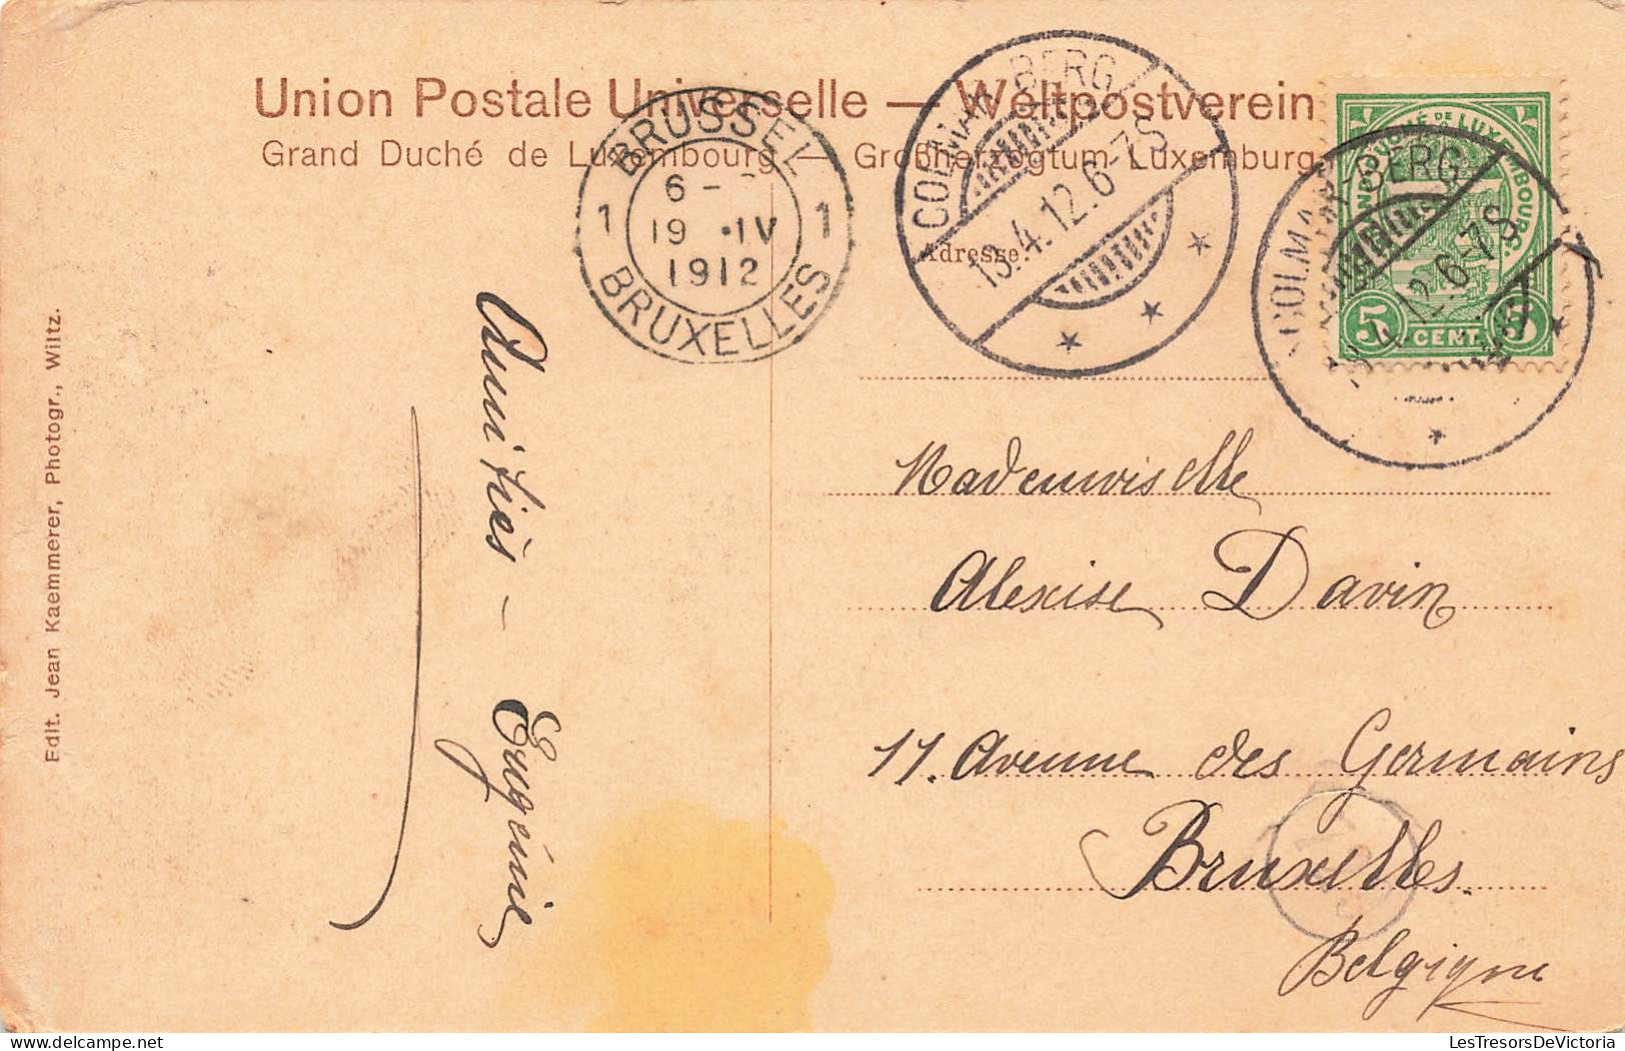 Union Postale Universelle — Weltpostverein
Grand Duché de Luxembourg — Großherzogtum Luxemburg
Adresse:
BRUSSEL
6 –
1 19 · IV 1
1912
BRUXELLES
COLMAR-BERG
13.4.12.6-7S
COLMAR-BERG
4.12.6-7S
GRAND DUCHÉ DE LUXEMBOURG.
5 CENT. 5
Amitiés –
Eugénie
Mademoiselle
Alexise Davin
11. Avenue des Germains
Bruxelles.
Belgique
Edit. Jean Kaemmerer, Photogr., Wiltz.
LesTresorsDeVictoria